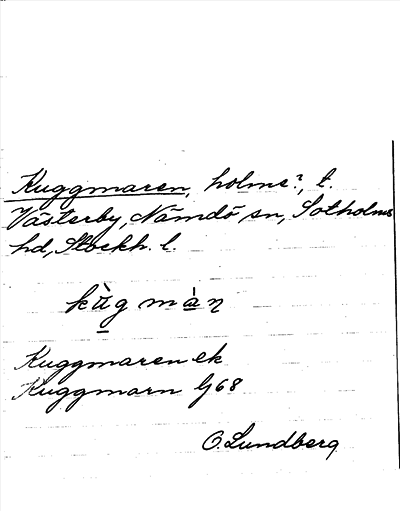 Kuggmaren, holme?, t.
Västerby, Nämdö sn, Sotholms
hd, Stockh. l.
kùg màn
Kuggmaren ek
Kuggmarn Gj 68
O. Lundberg